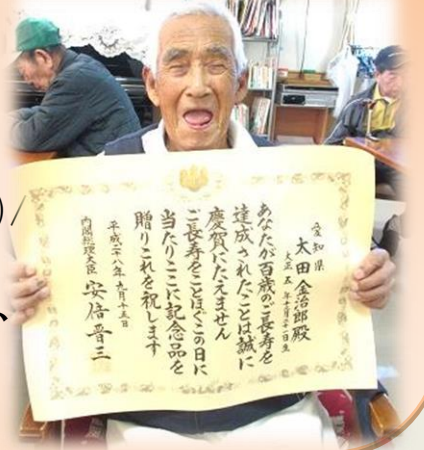 愛知県
太田金治郎殿
大正五年十一月二十一日生
あなたが百歳のご長寿を
達成されたことは誠に
慶賀にたえません
ご長寿をことほぐこの日に
当たりここに記念品を
贈りこれを祝します
平成二十八年九月十五日
内閣総理大臣 安倍晋三